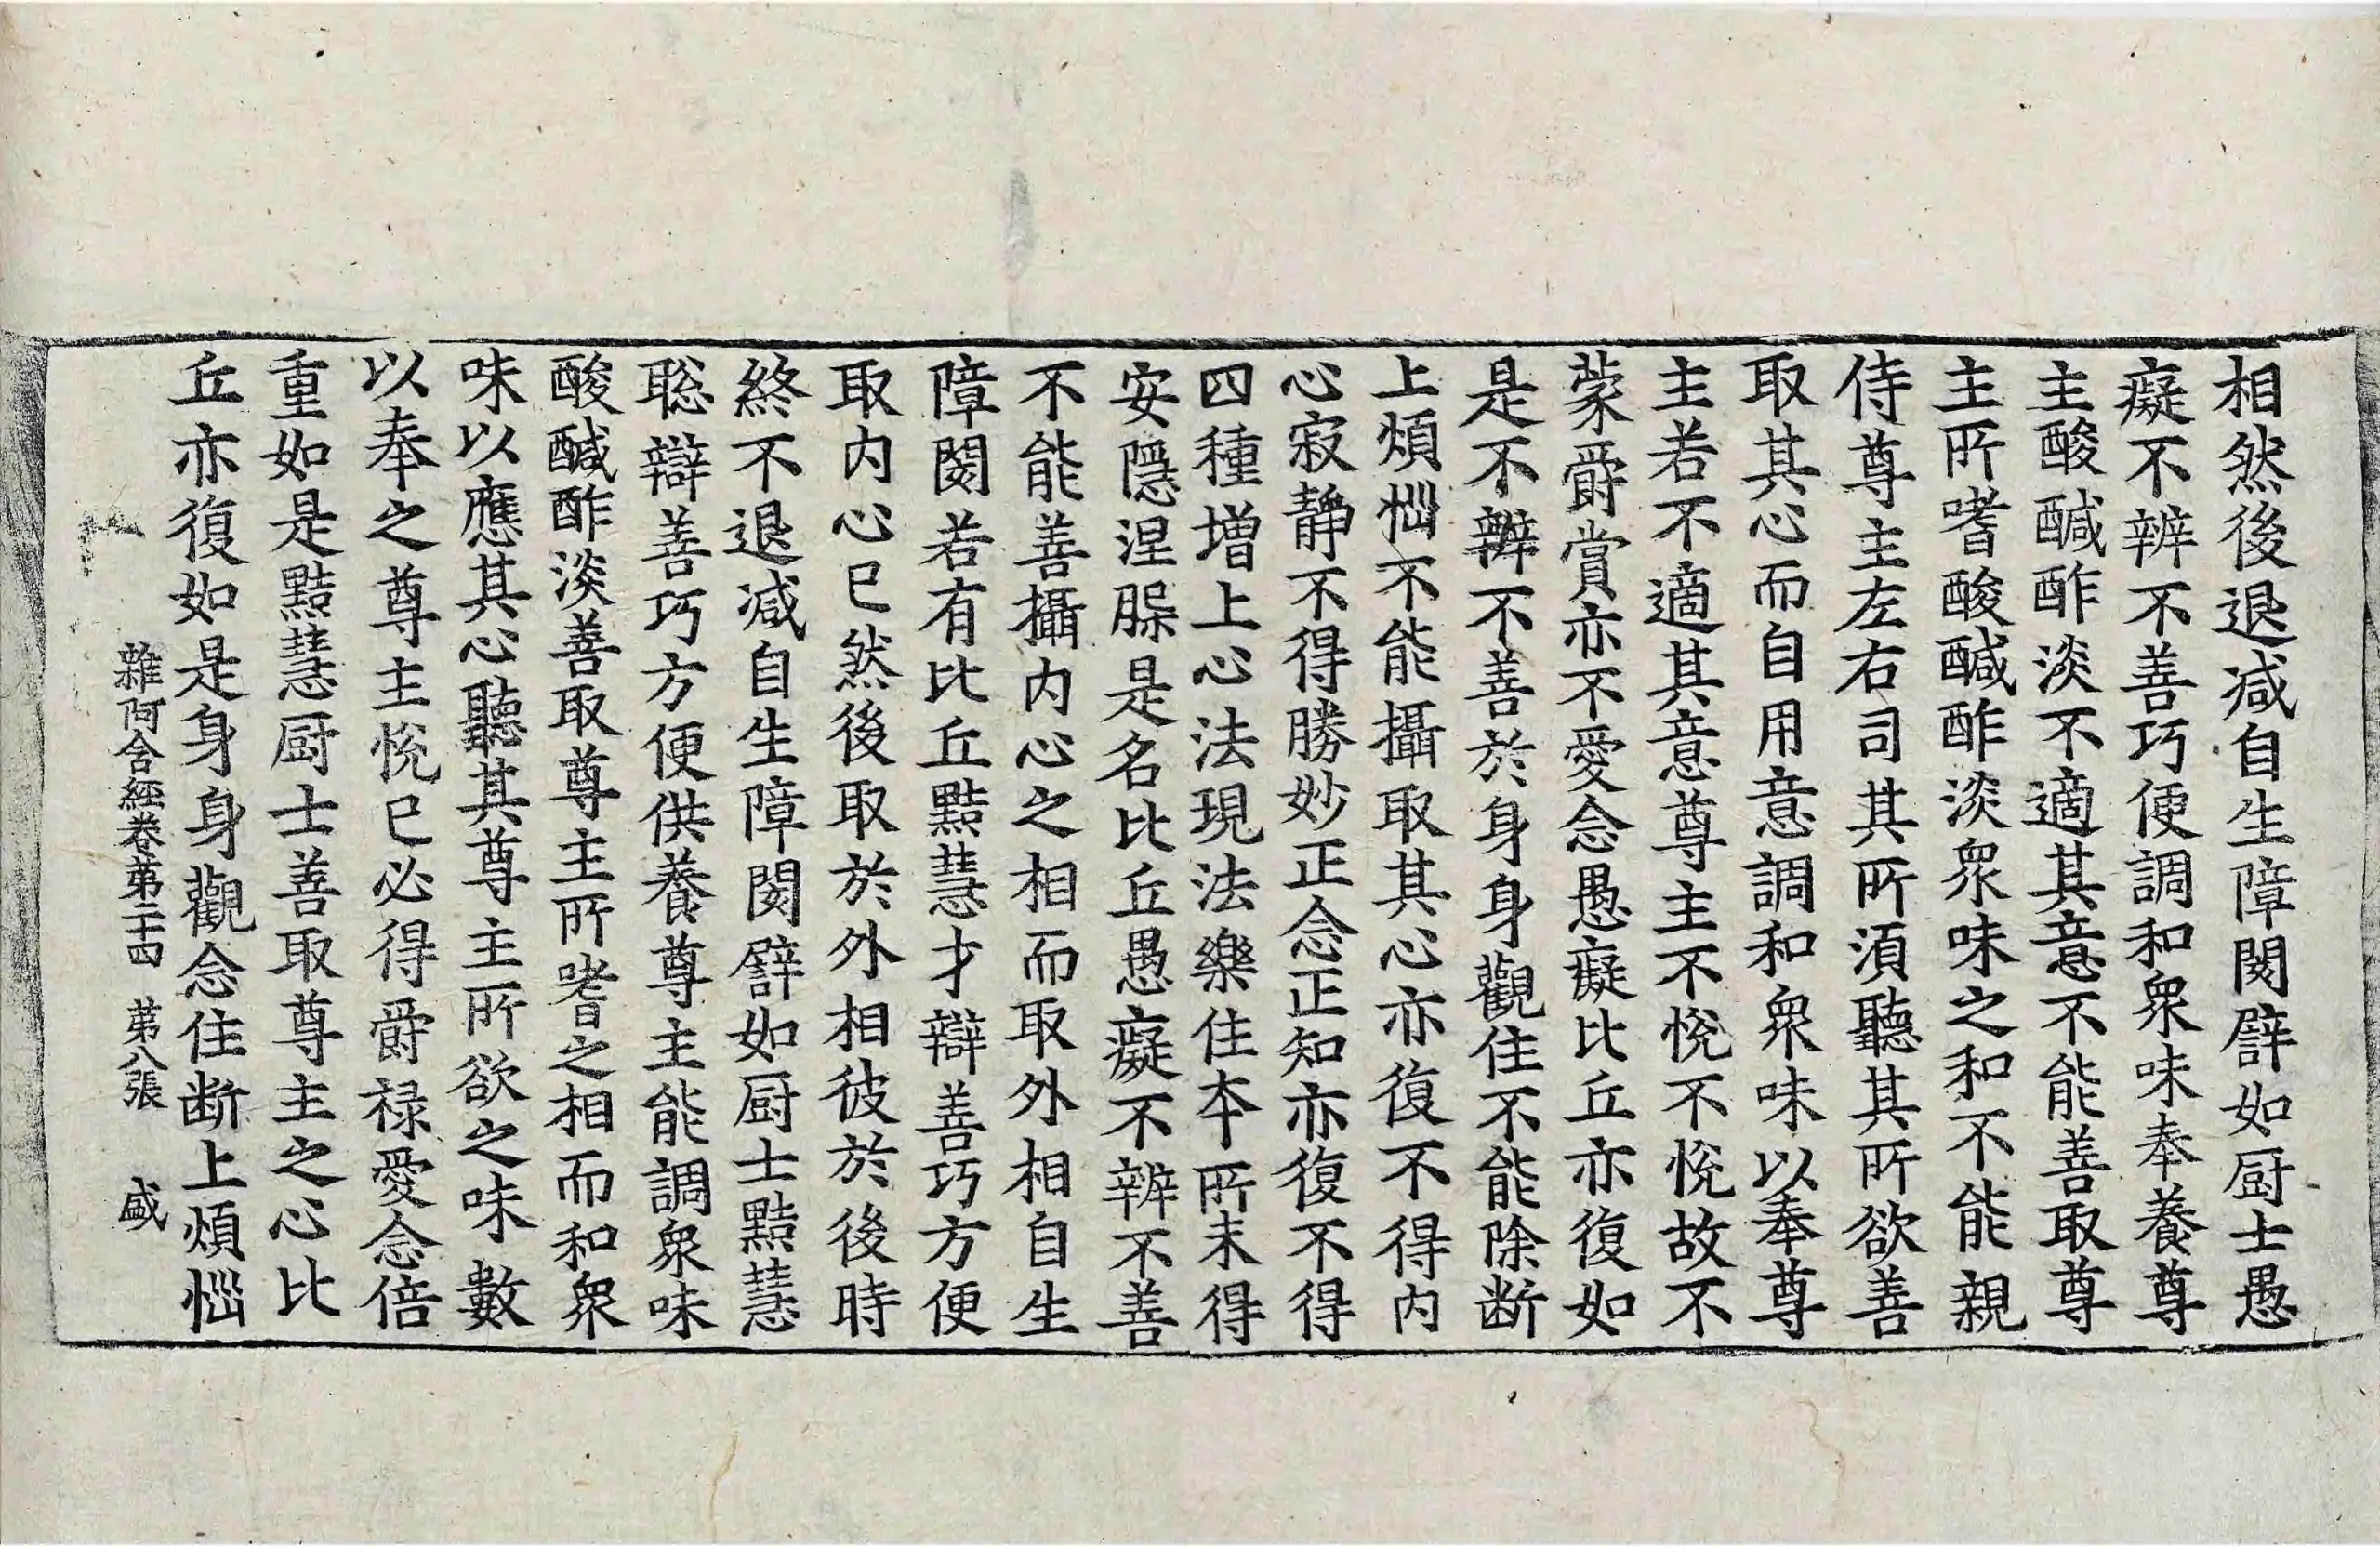 相然後退减自生障閡譬如厨士愚
癡不辨不善巧便調和衆味奉養尊
主酸醎酢淡不適其意不能善取尊
主所嗜酸醎酢淡衆味之和不能親
侍尊主左右司其所須聽其所欲善
取其心而自用意調和衆味以奉尊
主若不適其意尊主不悅不悅故不
蒙爵賞亦不愛念愚癡比丘亦復如
是不辨不善於身身觀住不能除断
上煩惱不能攝取其心亦復不得内
心寂静不得勝妙正念正知亦復不得
四種增上心法現法樂住本所未得
安隱涅槃是名比丘愚癡不辨不善
不能善攝内心之相而取外相自生
障閡若有比丘黠慧才辯善巧方便
取内心已然後取於外相彼於後時
終不退减自生障閡譬如厨士黠慧
聡辯善巧方便供養尊主能調衆味
酸醎酢淡善取尊主所嗜之相而和衆
味以應其心聽其尊主所欲之味數
以奉之尊主悅已必得爵禄愛念倍
重如是黠慧厨士善取尊主之心比
丘亦復如是身身觀念住断上煩惱
雜阿含經卷第二十四 第八張 盛